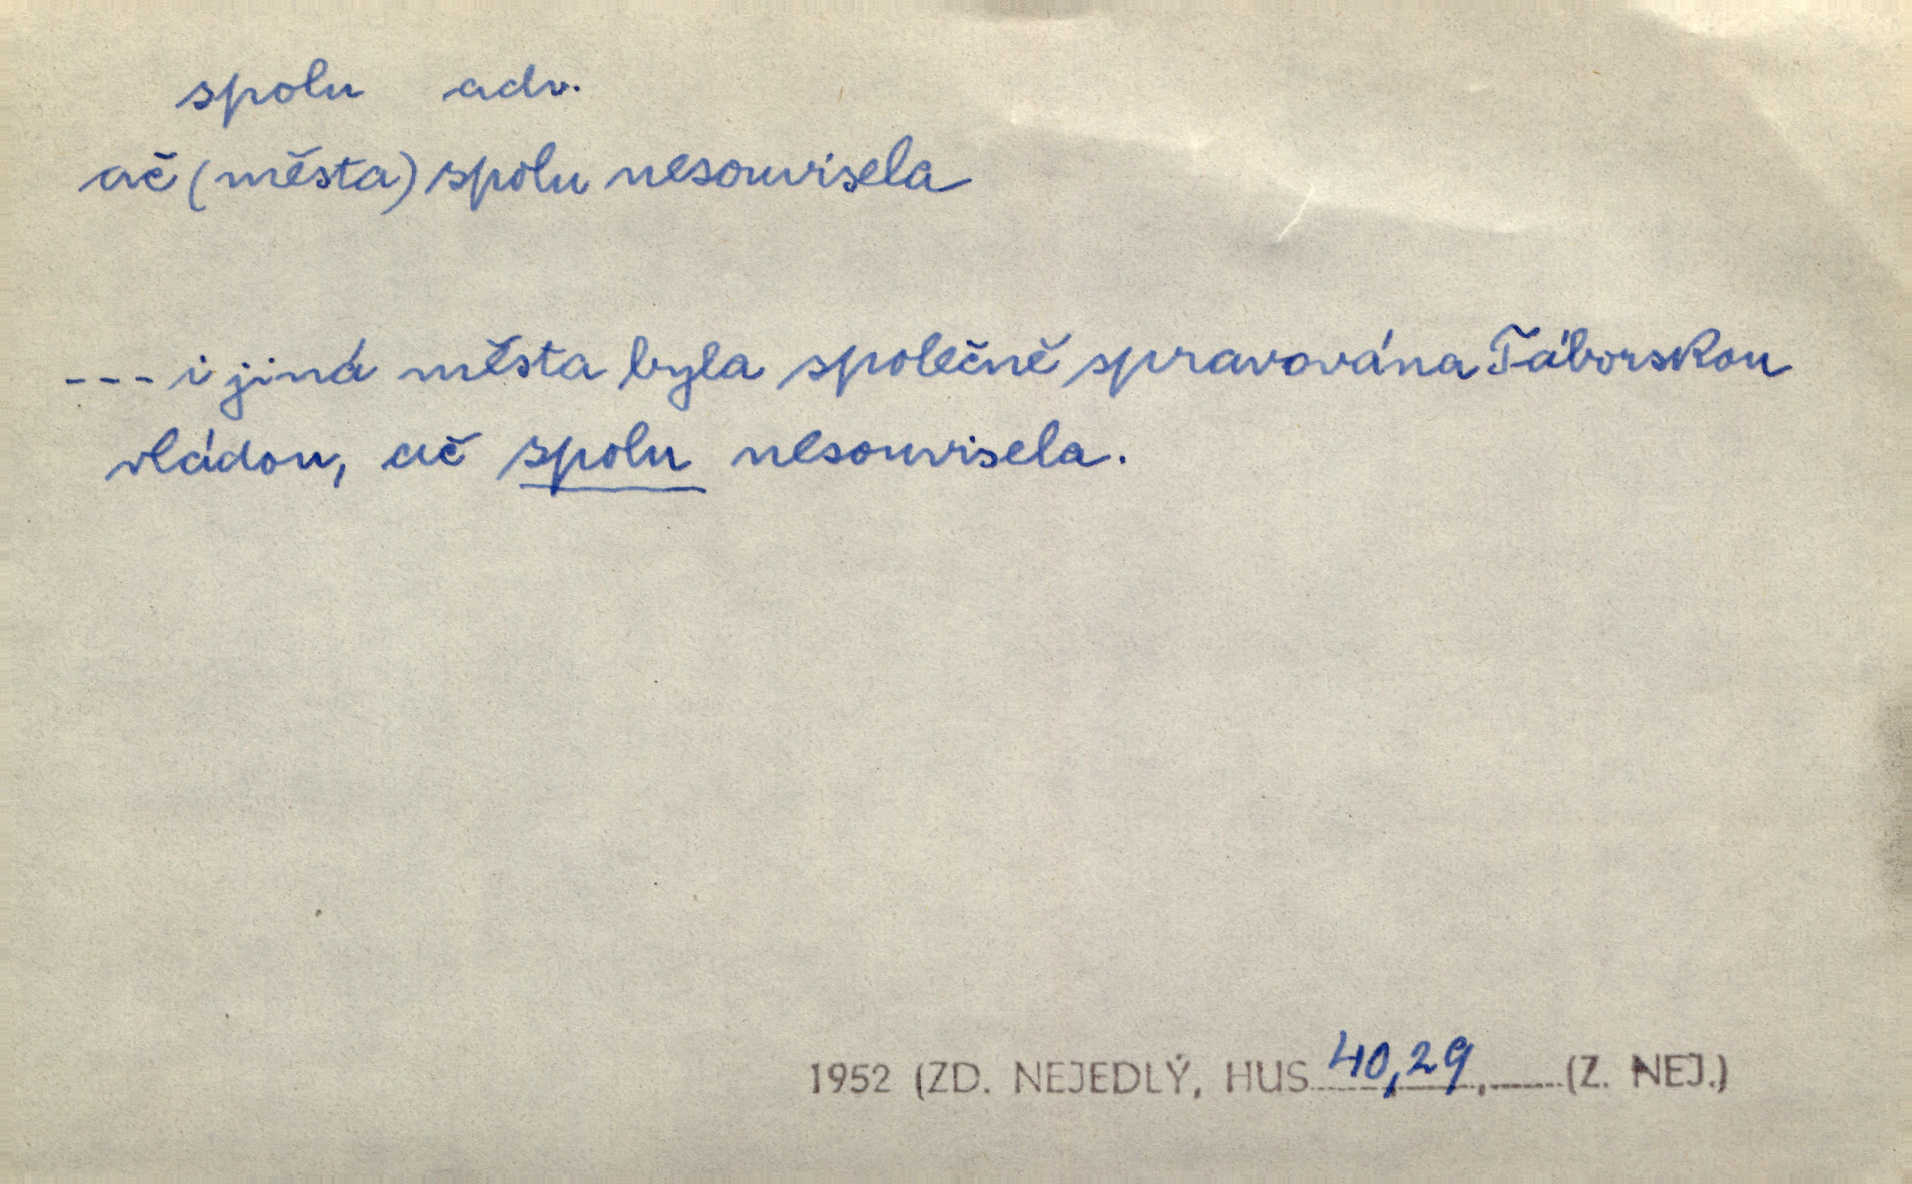 spolu adv.
ač (města) spolu nesouvisela
--- i jiná města byla společně spravována Táborskou
vládou, ač spolu nesouvisela.
1952 (ZD. NEJEDLÝ, HUS 40,29, (Z. NEJ.)